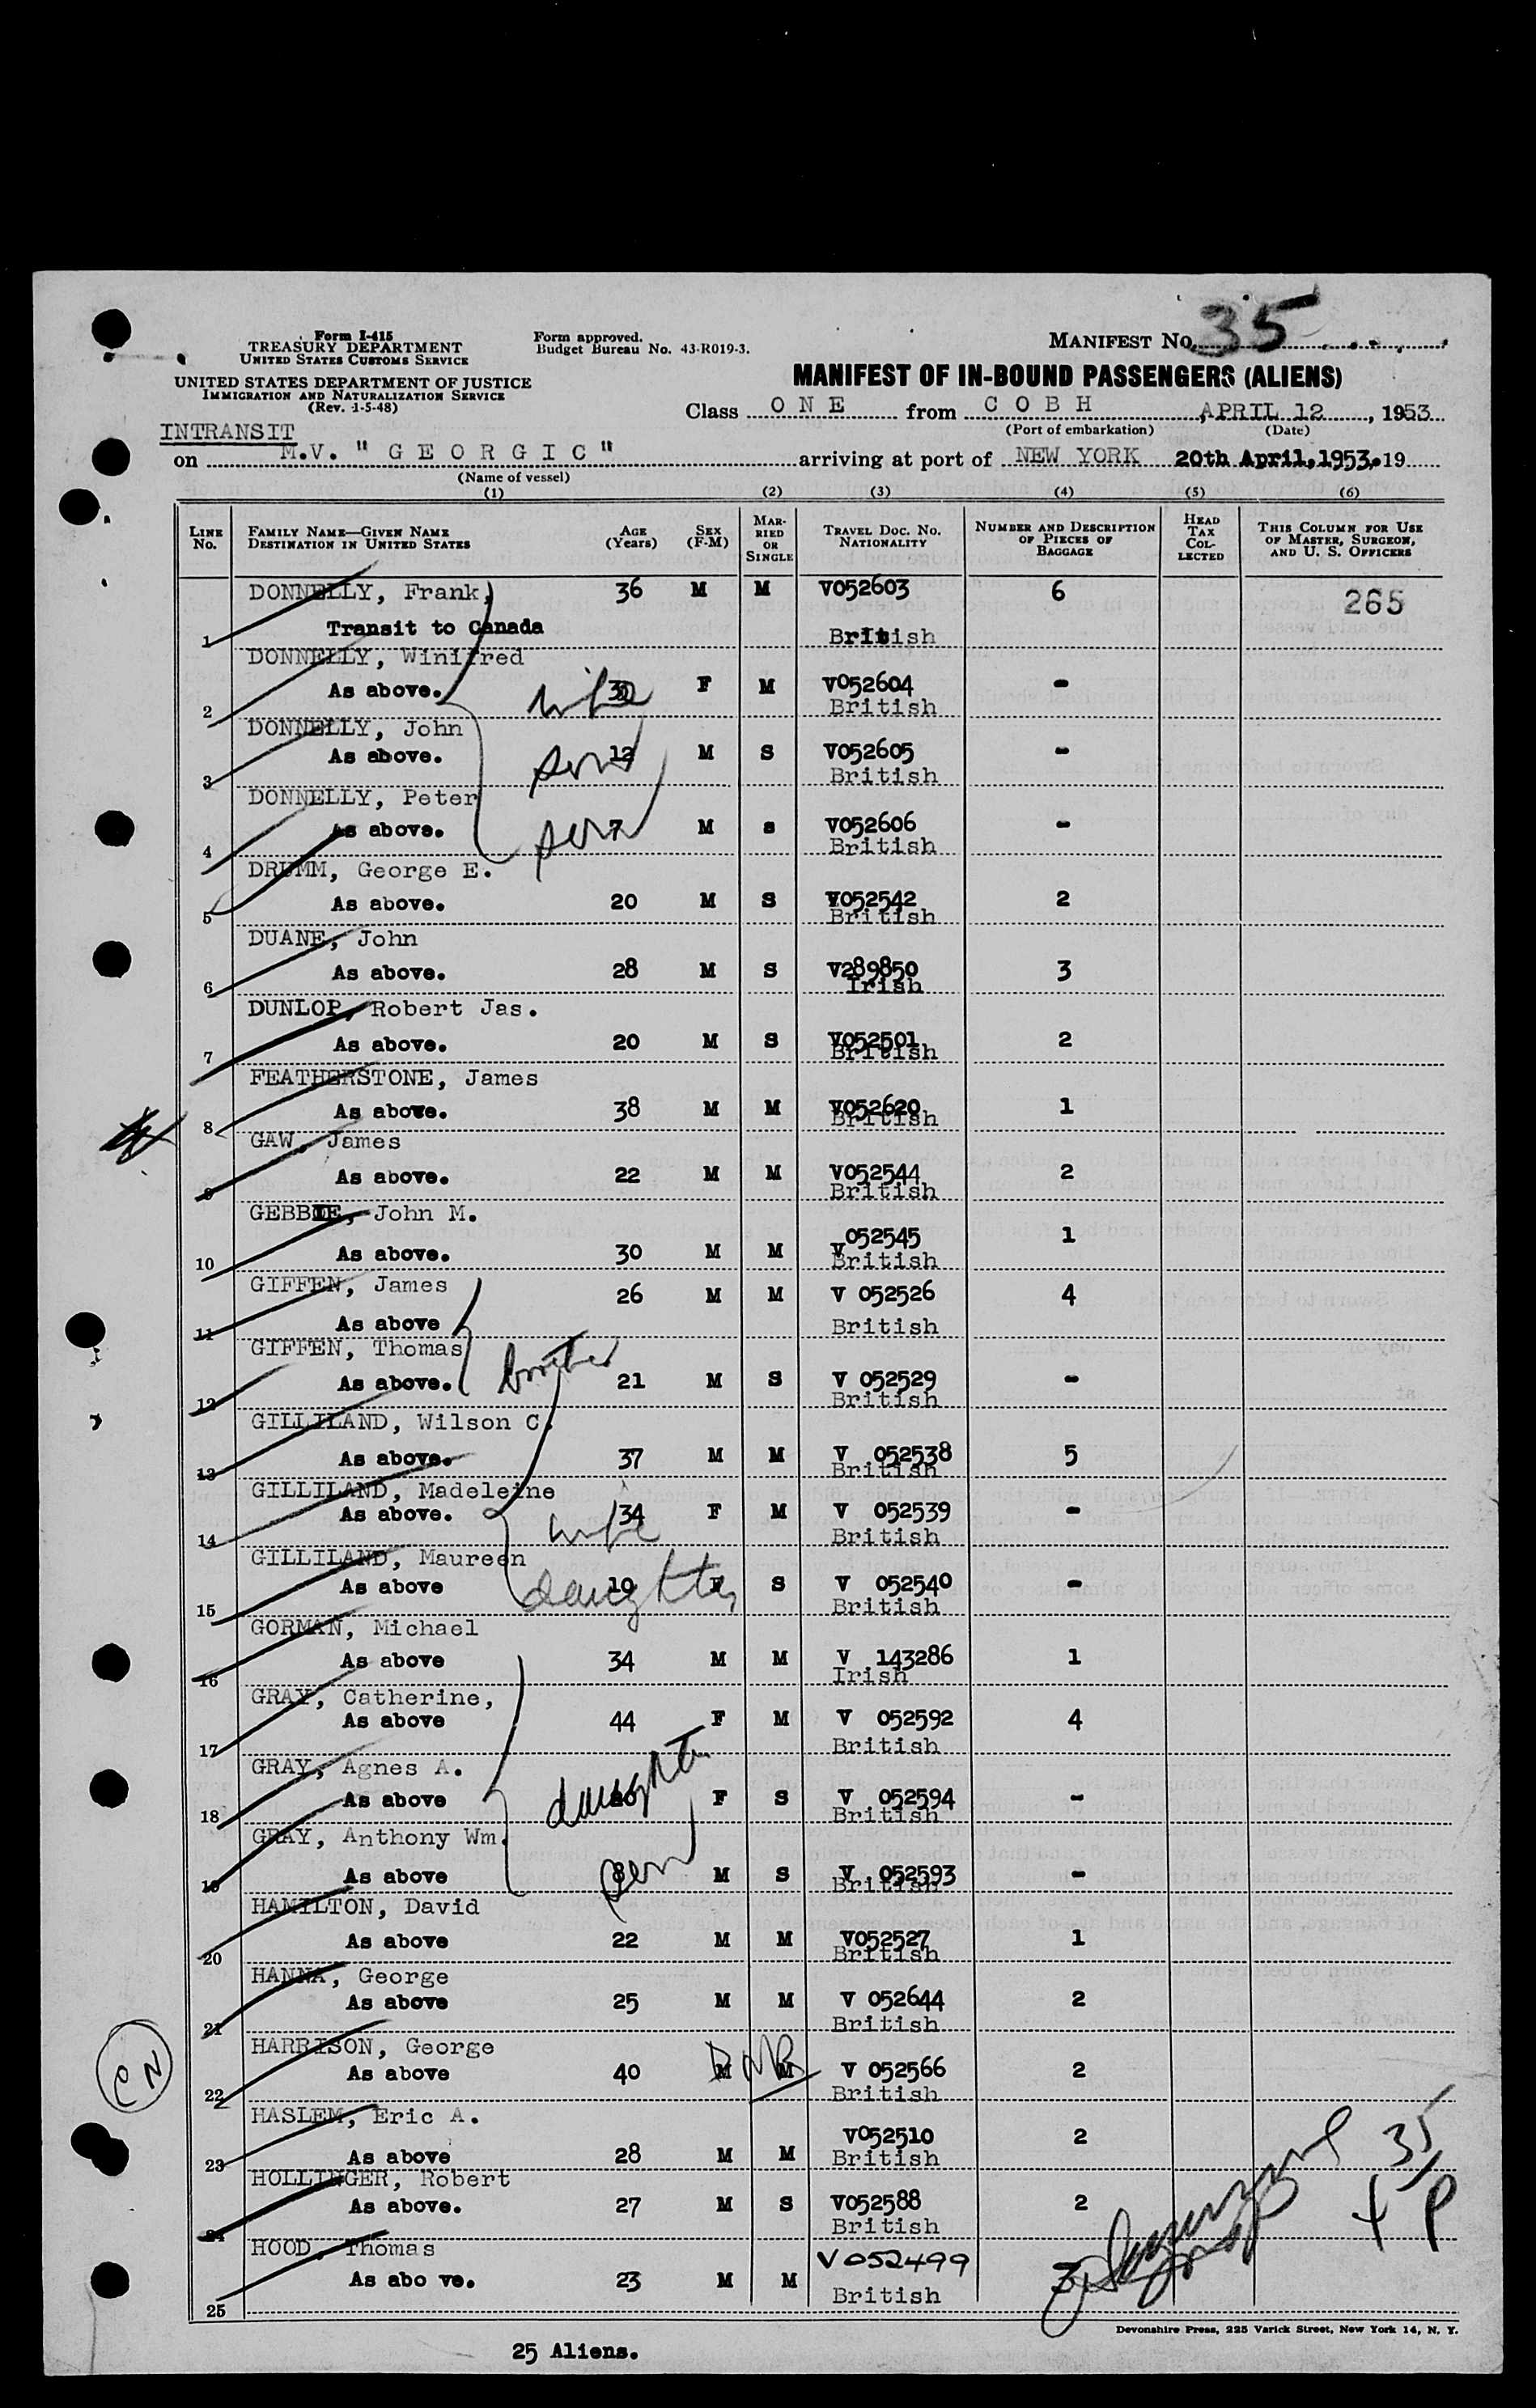 Form I-415
TREASURY DEPARTMENT
UNITED STATES CUSTOMS SERVICE
UNITED STATES DEPARTMENT OF JUSTICE
IMMIGRATION AND NATURALIZATION SERVICE
(Rev. 1-5-48)
Form approved.
Budget Bureau No. 43-R019-3.
MANIFEST No. 35
MANIFEST OF IN-BOUND PASSENGERS (ALIENS)
Class ONE from COBH, APRIL 12, 1953
(Port of embarkation) (Date)
INTRANSIT
on M.V. "GEORGIC" arriving at port of NEW YORK 20th April, 1953. 19
(Name of vessel)
(1) (2) (3) (4) (5) (6)
LINE No. FAMILY NAME—GIVEN NAME DESTINATION IN UNITED STATES AGE (Years) SEX (F-M) MARRIED OR SINGLE TRAVEL DOC. No. NATIONALITY NUMBER AND DESCRIPTION OF PIECES OF BAGGAGE HEAD TAX COLLECTED THIS COLUMN FOR USE OF MASTER, SURGEON, AND U. S. OFFICERS
DONNELLY, Frank, 36 M M V052603 6 265
1 Transit to Canada British
DONNELLY, Winifred
2 As above. wife M V052604 -
F British
DONNELLY, John
3 As above. son 12 M S V052605 -
British
DONNELLY, Peter
4 As above. son 7 M s V052606 -
British
DRUMM, George E.
5 As above. 20 M S V052542 2
British
DUANE, John
6 As above. 28 M S V289850 3
Irish
DUNLOP, Robert Jas.
7 As above. 20 M S V052501 2
British
FEATHERSTONE, James
8 As above. 38 M M V052620 1
British
GAW, James
9 As above. 22 M M V052544 2
British
GEBBIE, John M.
10 As above. 30 M M V052545 1
British
GIFFEN, James 26 M M V 052526 4
11 As above British
GIFFEN, Thomas
12 As above. brother 21 M S V 052529 -
British
GILLILAND, Wilson C.
13 As above. 37 M M V 052538 5
British
GILLILAND, Madeleine
14 As above. wife 34 F M V 052539 -
British
GILLILAND, Maureen
15 As above daughter 10 F S V 052540 -
British
GORMAN, Michael
16 As above 34 M M V 143286 1
Irish
GRAY, Catherine,
17 As above 44 F M V 052592 4
British
GRAY, Agnes A.
18 As above daughter F S V 052594 -
British
GRAY, Anthony Wm.
19 As above son M S V 052593 -
British
HAMILTON, David
20 As above 22 M M V052527 1
British
HANNA, George
21 As above 25 M M V 052644 2
British
HARRISON, George
22 As above 40 M M V 052566 2
British
CN
HASLEM, Eric A.
23 As above 28 M M V052510 2
British
HOLLINGER, Robert
24 As above. 27 M S V052588 2
British
HOOD, Thomas
25 As abo ve. 23 M M V052499 3
British
35
P
Devonshire Press, 225 Varick Street, New York 14, N. Y.
25 Aliens.